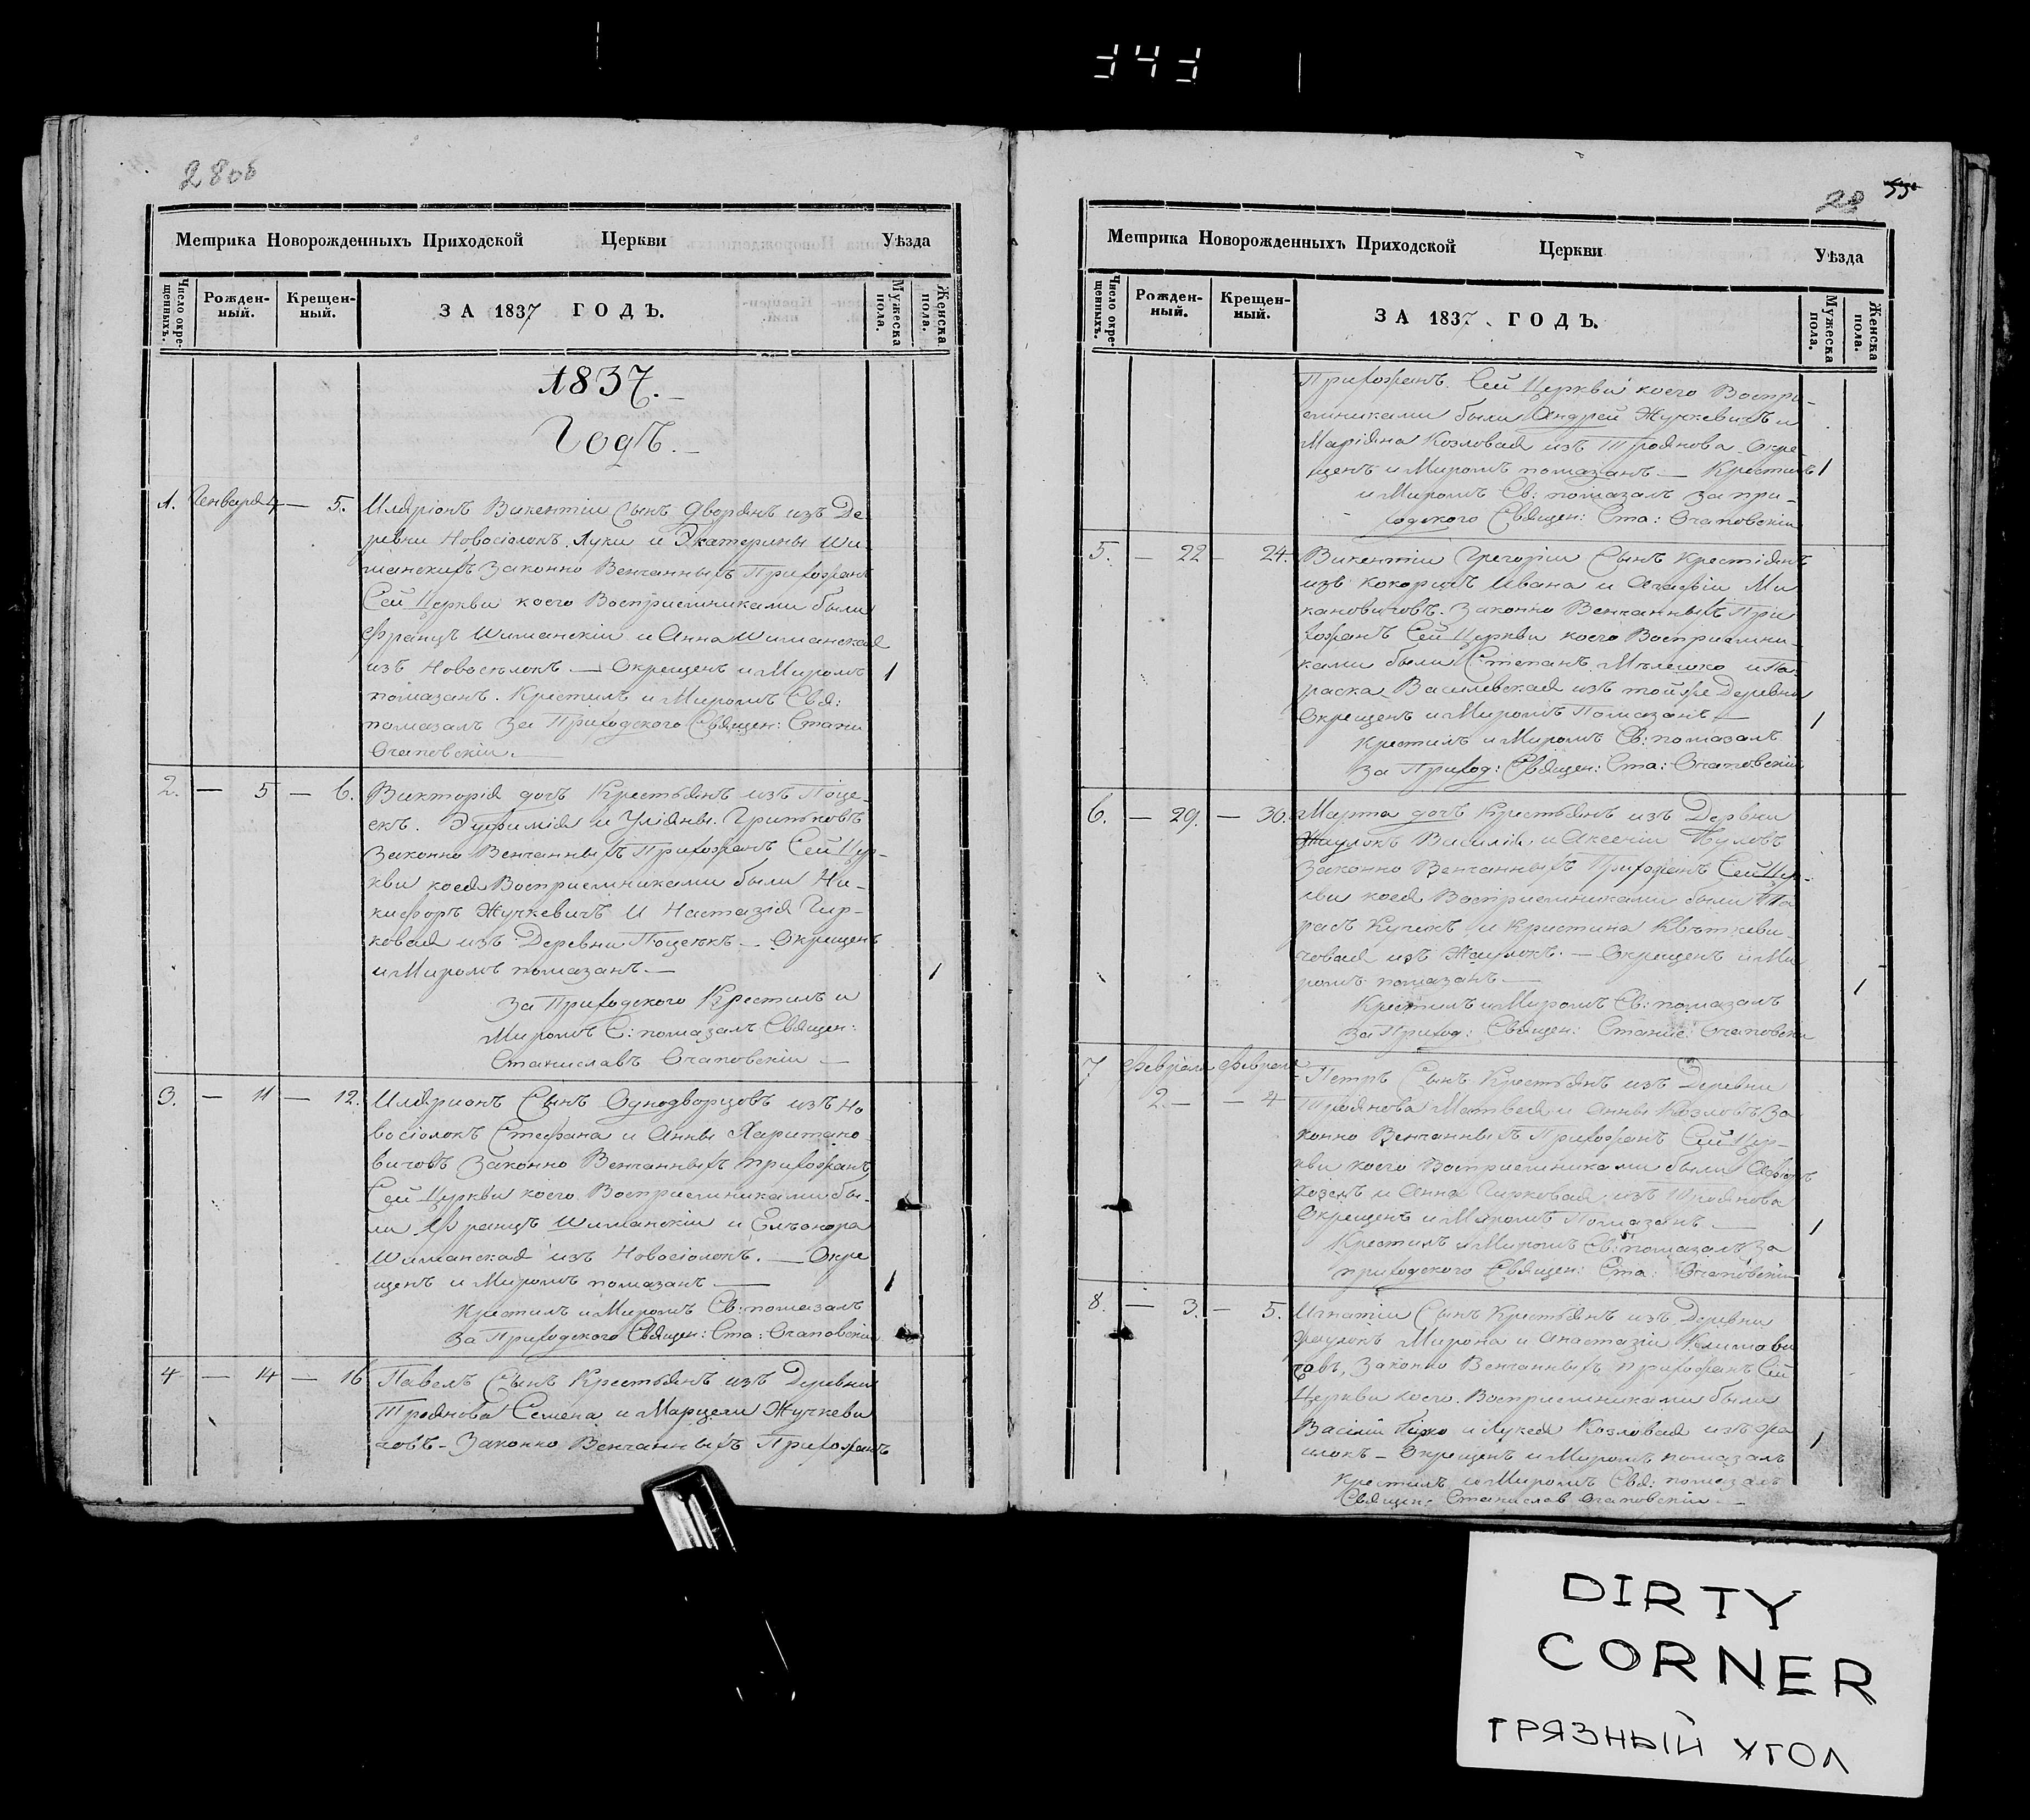 343
28об
Метрика Новорожденныхъ Приходской Церкви Уѣзда
Число окрещенныхъ. Рожденный. Крещенный. ЗА 1837 ГОДЪ. Мужеска пола. Женска пола.
1837.
Годъ.
1. Генваря 4 — 5. Иляріонъ Викентіи Сынъ Дворянъ изъ Де
ревни Новосіолокъ Луки и Екатерины Ши-
манскихъ Законно Венчанныхъ Прихожанъ
Сей Церкви коего Восприемниками были
Францъ Шиманскіи и Анна Шиманская
изъ Новоселокъ — Окрещенъ и Миромъ 1
помазанъ. Крестилъ и Миромъ Свя:
помазалъ За Приходского Священ: Стани
Очаповскіи.
2. — 5 — 6. Викторія дочъ Крестьянъ изъ Поце-
екъ. Эуфимія и Уліяны Гритьковъ
Законно Венчанныхъ Прихожанъ Сей Цер-
кви коея Восприемниками были Ни-
кифоръ Жучкевичъ И Настазія Гир-
ковая изъ Деревни Поцеекъ — Окрещенъ
и Миромъ помазанъ — 1
За Приходского Крестилъ и
Миромъ С: помазалъ Священ:
Станиславъ Очаповскіи —
3. — 11 — 12. Иляріонъ Сынъ Однодворцовъ изъ Но
восіолокъ Стефана и Анны Харитано-
вичовъ Законно Венчанныхъ прихожанъ
Сей Церкви коего Восприемниками бы-
ли Францъ Шиманскіи и Елъонора
Шиманская изъ Новосіолокъ. — Окре
щенъ и Миромъ помазанъ — 1
Крестилъ и Миромъ Св: помазалъ
За Приходского Священ: Ста: Очаповскіи
4 — 14 — 16 Павелъ Сынъ Крестьянъ изъ Деревни
Трояново Семена и Марцели Жучкеви
човъ — Законно Венчанныхъ Прихожанъ
28 55
Метрика Новорожденныхъ Приходской Церкви Уѣзда
Число окрещенныхъ. Рожденный. Крещенный. ЗА 1837 ГОДЪ. Мужеска пола. Женска пола.
Прихожанъ. Сей Церкви коего Воспри-
емниками были Андрей Жучкевичъ и
Маріяна Козловая изъ Троянова Окре-
щенъ и Миромъ помазанъ — Крестилъ 1
и Миромъ Св: помазалъ за при-
ходского Священ: Ста: Очаповскіи
5. — 22 — 24. Викентіи Григоріи Сынъ Крестіянъ
изъ Кокорицъ Ивана и Агафіи Ми
кановичовъ. Законно Венчанныхъ При
хожанъ Сей Церкви коего Восприемни-
ками были Степанъ Мѣлешко и Па-
раска Василевская изъ тойже Деревни
Окрещенъ и Миромъ Помазанъ — 1
Крестилъ и Миромъ Св: помазалъ
За Приход: Священ: Ста: Очаповскіи
6. — 29. — 30. Марта дочъ Крестьянъ изъ Деревни
Василія и Аксеніи
Законно Венчанныхъ Прихожанъ Сей Цер-
кви коея Восприемниками были Та
расъ и Кристина Квѣткеви-
човая изъ — Окрещенъ и Ми
ромъ помазанъ — 1
Крестилъ и Миромъ Св: помазалъ
За Приход: Священ: Станис: Очаповскіи
7 Февраля Февраля Петръ Сынъ Крестьянъ изъ Деревни
2. — — 4 Троянова Матвея и Анны Козловъ За
конно Венчанныхъ Прихожанъ Сей Цер-
кви коего Восприемниками были
Козелъ и Анна Гирковая изъ Троянова
Окрещенъ и Миромъ Помазанъ — 1
Крестилъ и Миромъ Св: помазалъ За
приходского Священ: Ста: Очаповскіи
8. — 3. — 5. Игнатіи Сынъ Крестьянъ изъ Деревни
Мирона и Анастазіи Климови
човъ, Законно Венчанныхъ прихожанъ Сей
Церкви коего Восприемниками были
Василій и Лукея Козловая изъ
— Окрещенъ и Миромъ помазалъ 1
Крестилъ и Миромъ Свя: помазалъ
Священ: Станислав Очаповскіи —
DIRTY
CORNER
ГРЯЗНЫЙ УГОЛ